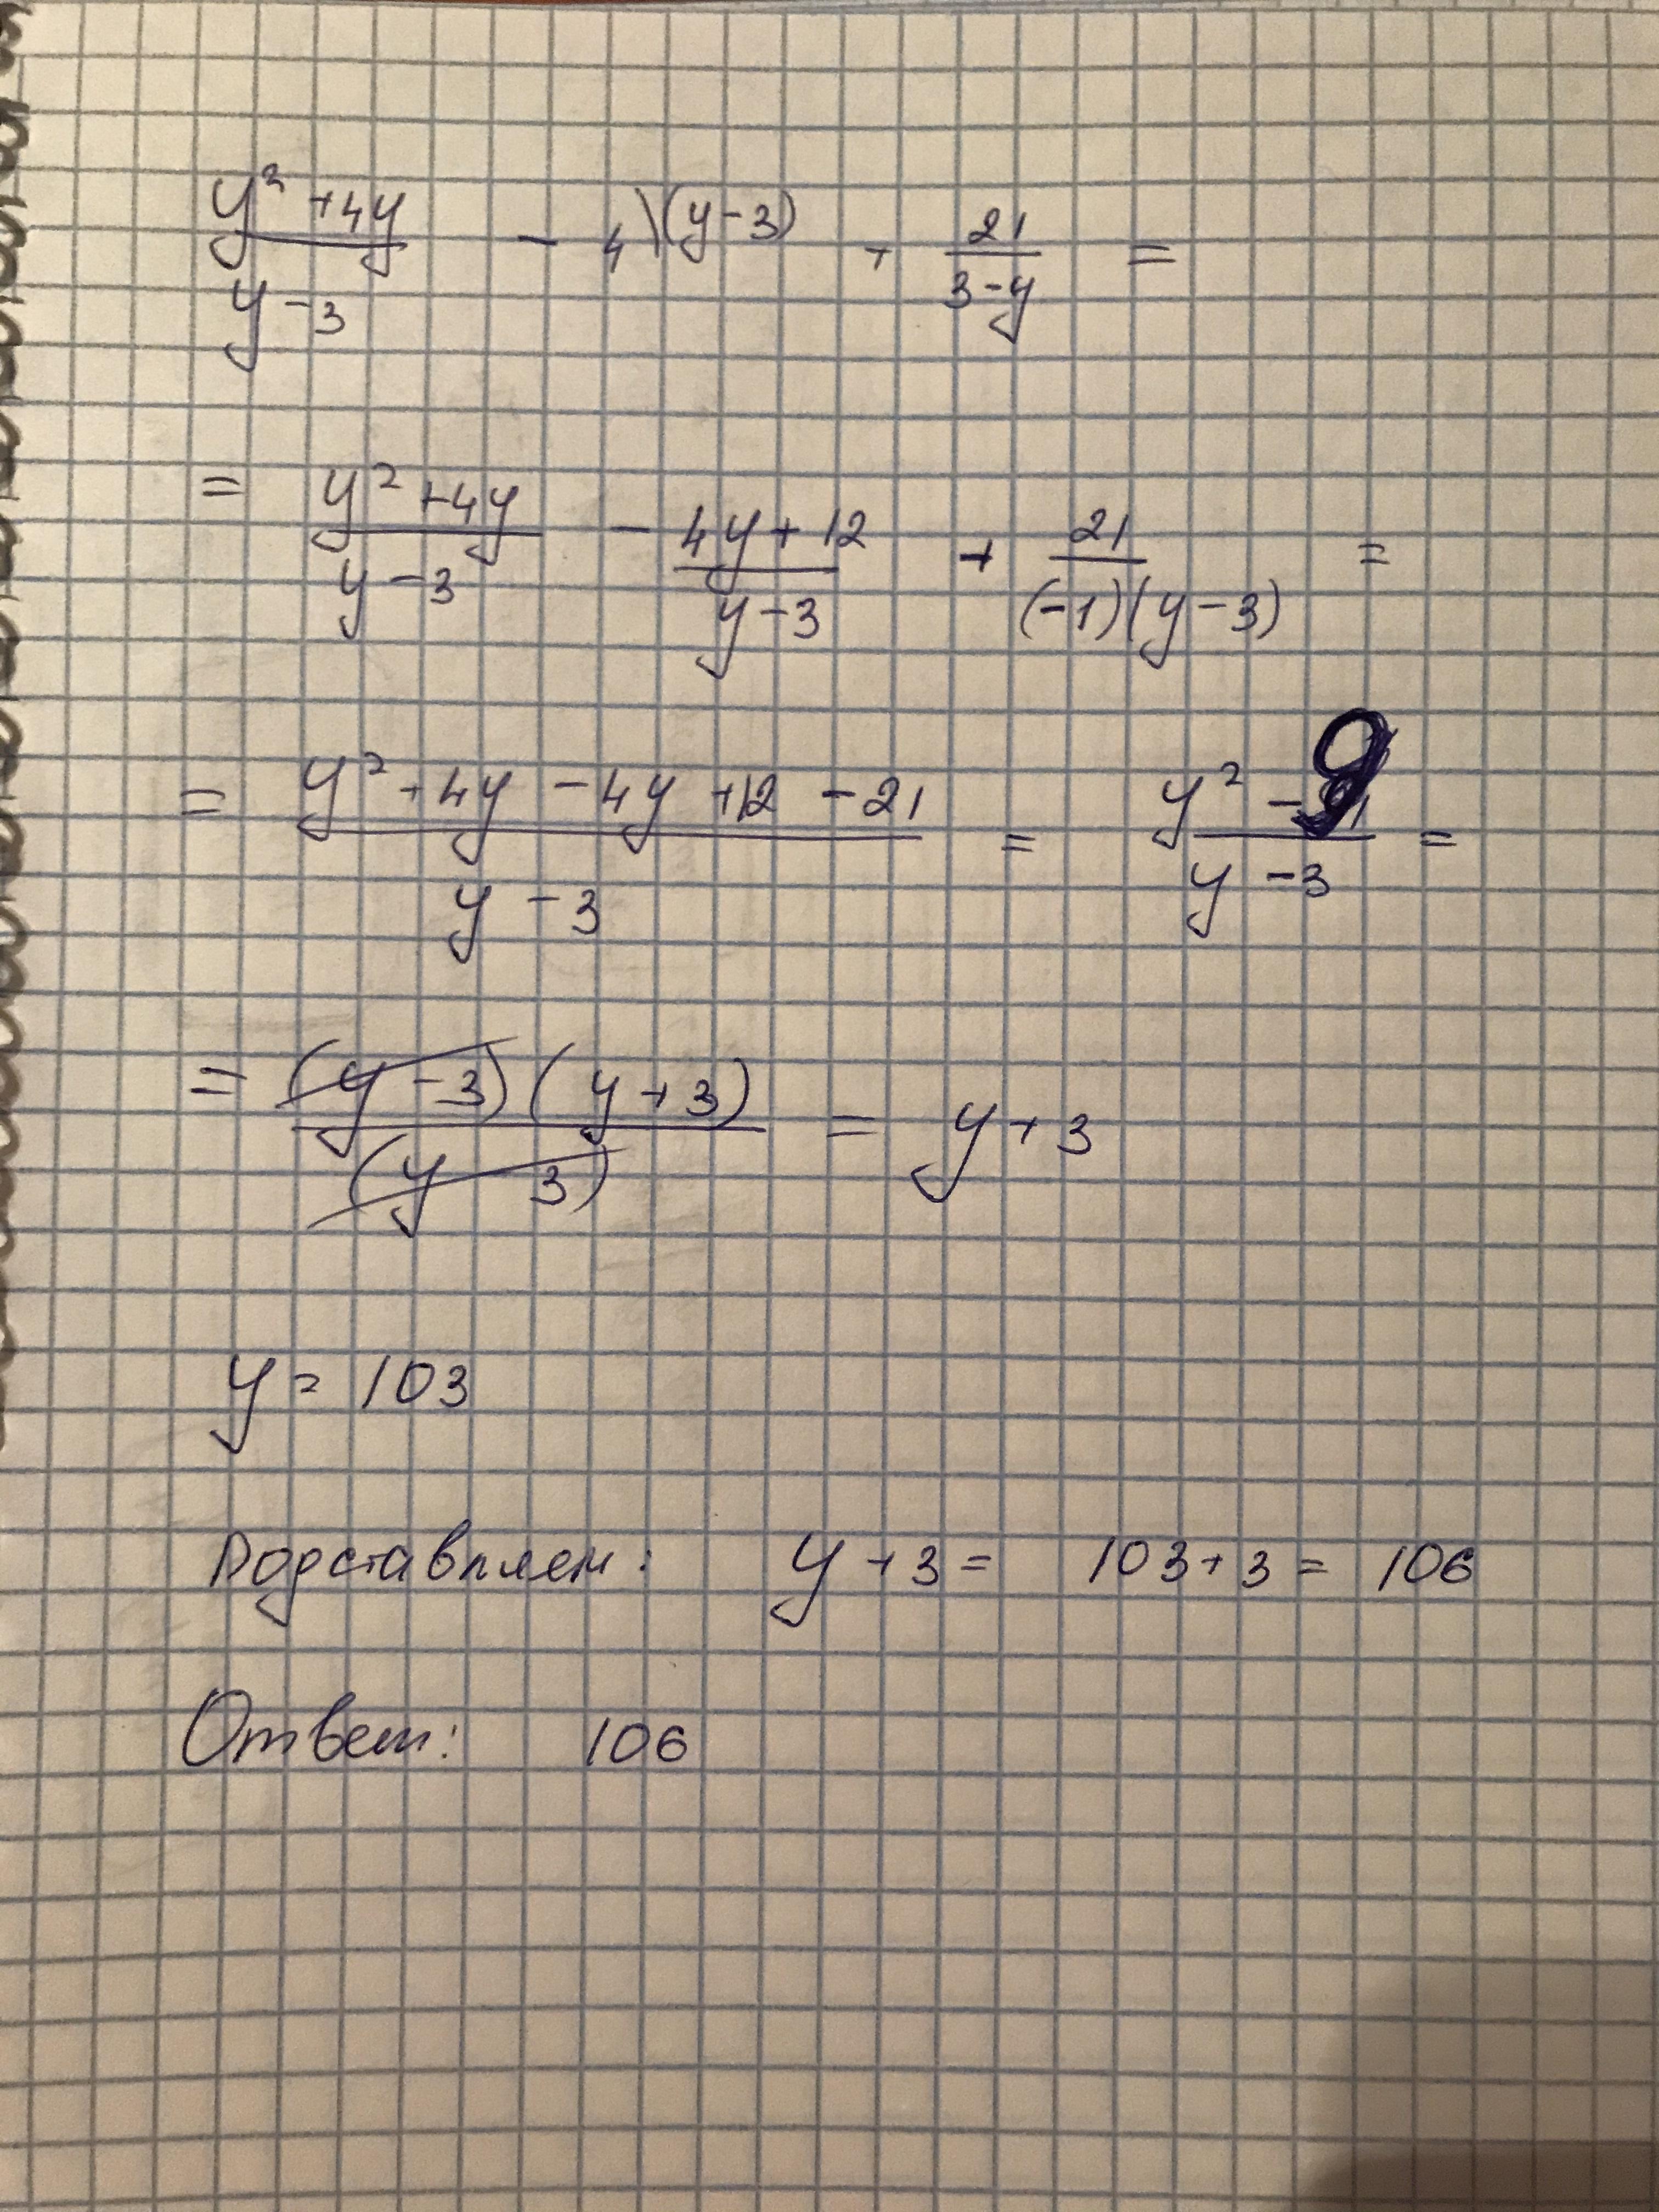 (y² + 4y)/(y - 3) - 4\(y - 3) + 21/(3 - y) =
= (y² + 4y)/(y - 3) - (4y + 12)/(y - 3) + 21/((-1)(y - 3)) =
= (y² + 4y - 4y + 12 - 21)/(y - 3) = (y² - 9)/(y - 3) =
= (y - 3)(y + 3)/(y - 3) = y + 3
y = 103
Подставляем: y + 3 = 103 + 3 = 106
Ответ: 106